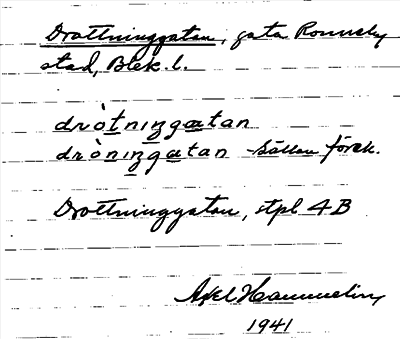 Drottninggatan, gata Ronneby
stad, Blek. l.
dròtnιngatan
dròningatan sällan förek.
Drottninggatan, stpl 4B
Axel Hammelin
1941